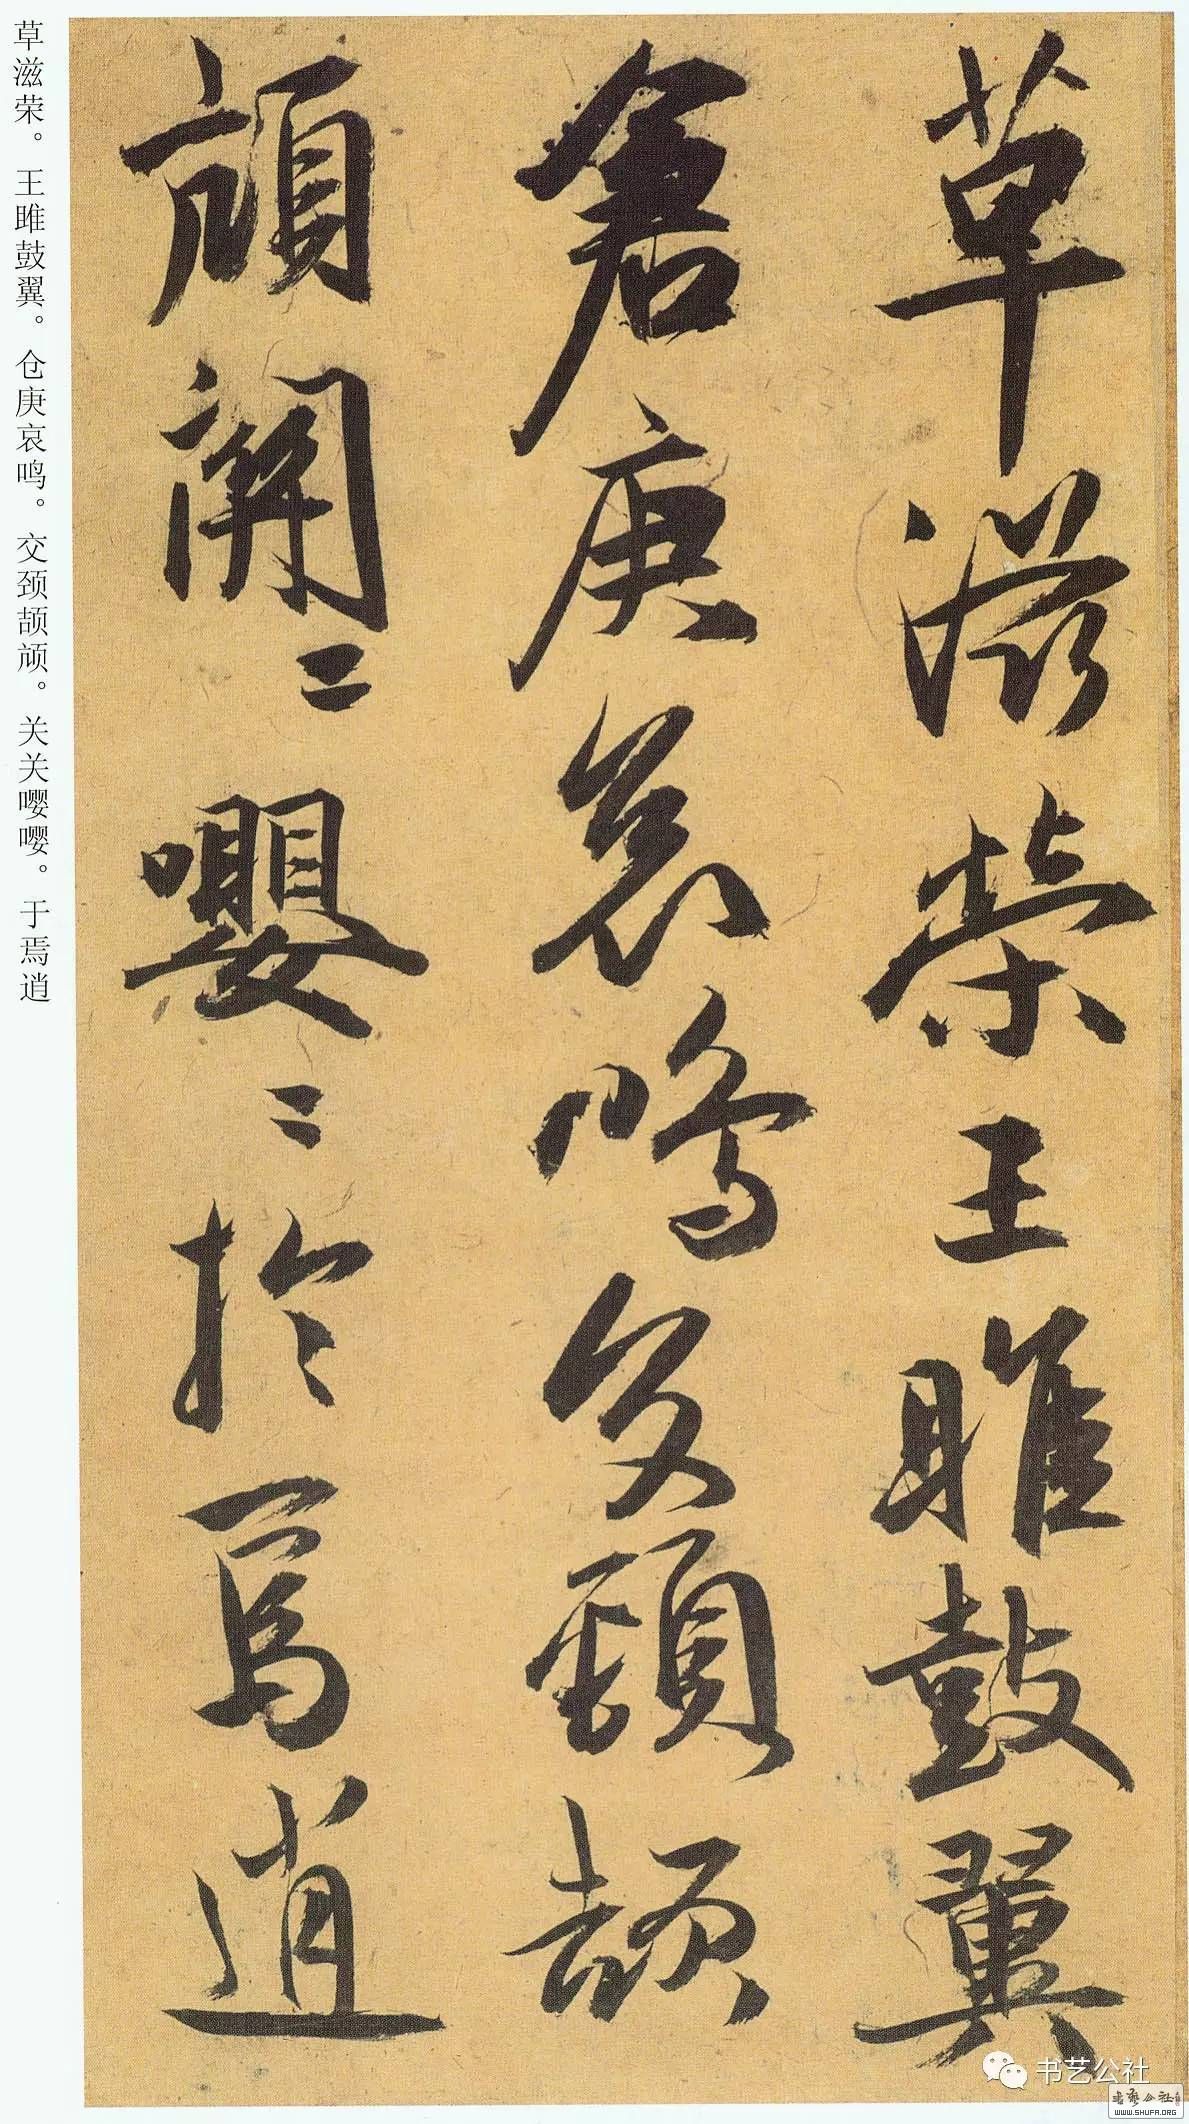 草滋荣王雎鼓翼
仓庚哀鳴交頸頡
頏關〻嚶〻於焉逍
草滋荣。王雎鼓翼。仓庚哀鸣。交颈颉颃。关关嘤嘤。于焉逍
书艺公社
书艺公社
WWW.SHUFA.ORG